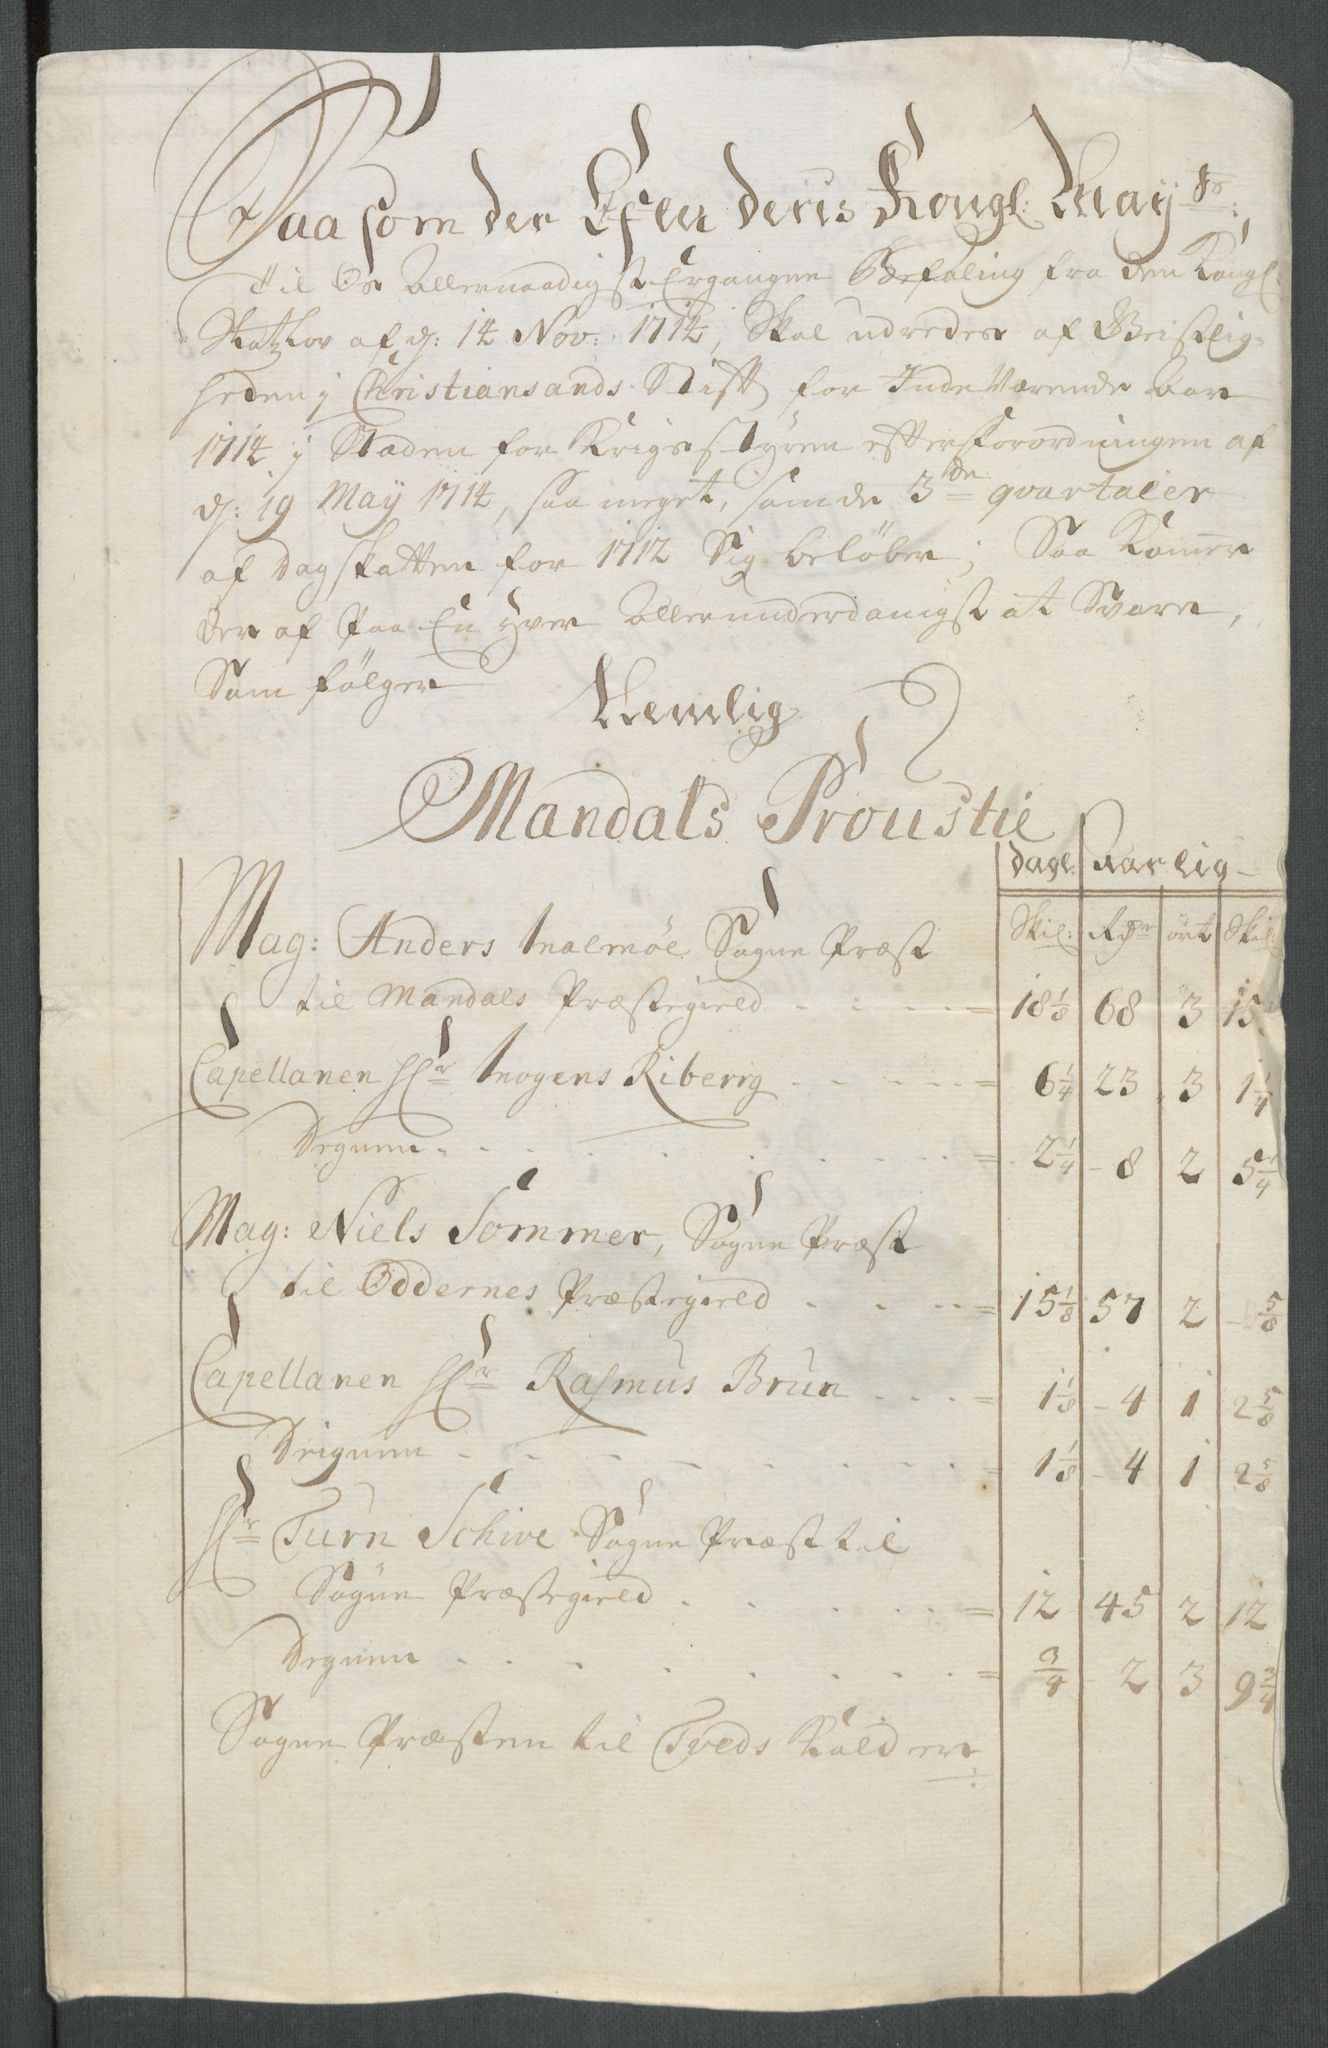 Saasom der Efter deris Kongl: May:tz
til Os Allernaadigst Ergangne Befaling fra den Kongl:
Slotzlov af d: 14 Nov: 1714, Skal udredes af Geistlig-
heden j Christiansands Stift for Inde Værende Aar
1714 j Steden for Krigsstyren efter Forordningen af
d: 19 May 1714, saa meget, som de 3de qvartaler
af dagskatten for 1712 Sig beløber; Saa Kommer
der af Paa En hver Allerunderdanigst at Svare,
Som følger
Nemlig
Mandals Proustie
dagl: Aarlig
Skil: Rdr ort Skil:
Mag: Anders Malmøe Sogne Præst
til Mandals Præstegield 18 1/8 68 3 15
Capellanen Hr Mogens Riberrig 6 1/4 23 3 1 1/4
Degnen 2 1/4 8 2 5 1/4
Mag: Niels Sommer, Sogne Præst
til Oddernes Præstegield 15 1/8 57 2 5/8
Capellanen Hr Rasmus Brun 1 1/8 4 1 2 5/8
Deignen 1 1/8 4 1 2 5/8
Hr Turn Schive Sogne Præst til
Søgne Præstegield 12 45 2 12
Degnen 3/4 2 3 9 3/4
Sogne Præsten til Tveds Kald er